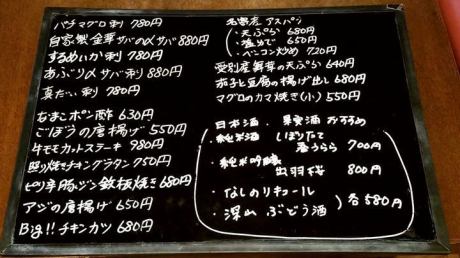 バチマグロ刺 780円
自家製金華サバの〆サバ 880円
するめいか刺 780円
あぶり〆サバ刺 880円
真だい刺 780円
なまこポン酢 630円
ごぼうの唐揚げ 550円
牛モモカットステーキ 980円
照り焼きチキングラタン 750円
ピリ辛豚ジン鉄板焼き 680円
アジの唐揚げ 650円
Big!!チキンカツ 680円
名寄産アスパラ
・天ぷら 680円
・塩ゆで 650円
・ベーコン炒め 720円
愛別産舞茸の天ぷら 640円
茄子と豆腐の揚げ出し 680円
マグロのカマ焼き(小) 550円
日本酒・果実酒おすすめ
・純米酒 しぼりたて
春うらら 700円
・純米吟醸
出羽桜 800円
・なしのリキュール
・深山ぶどう酒 各580円